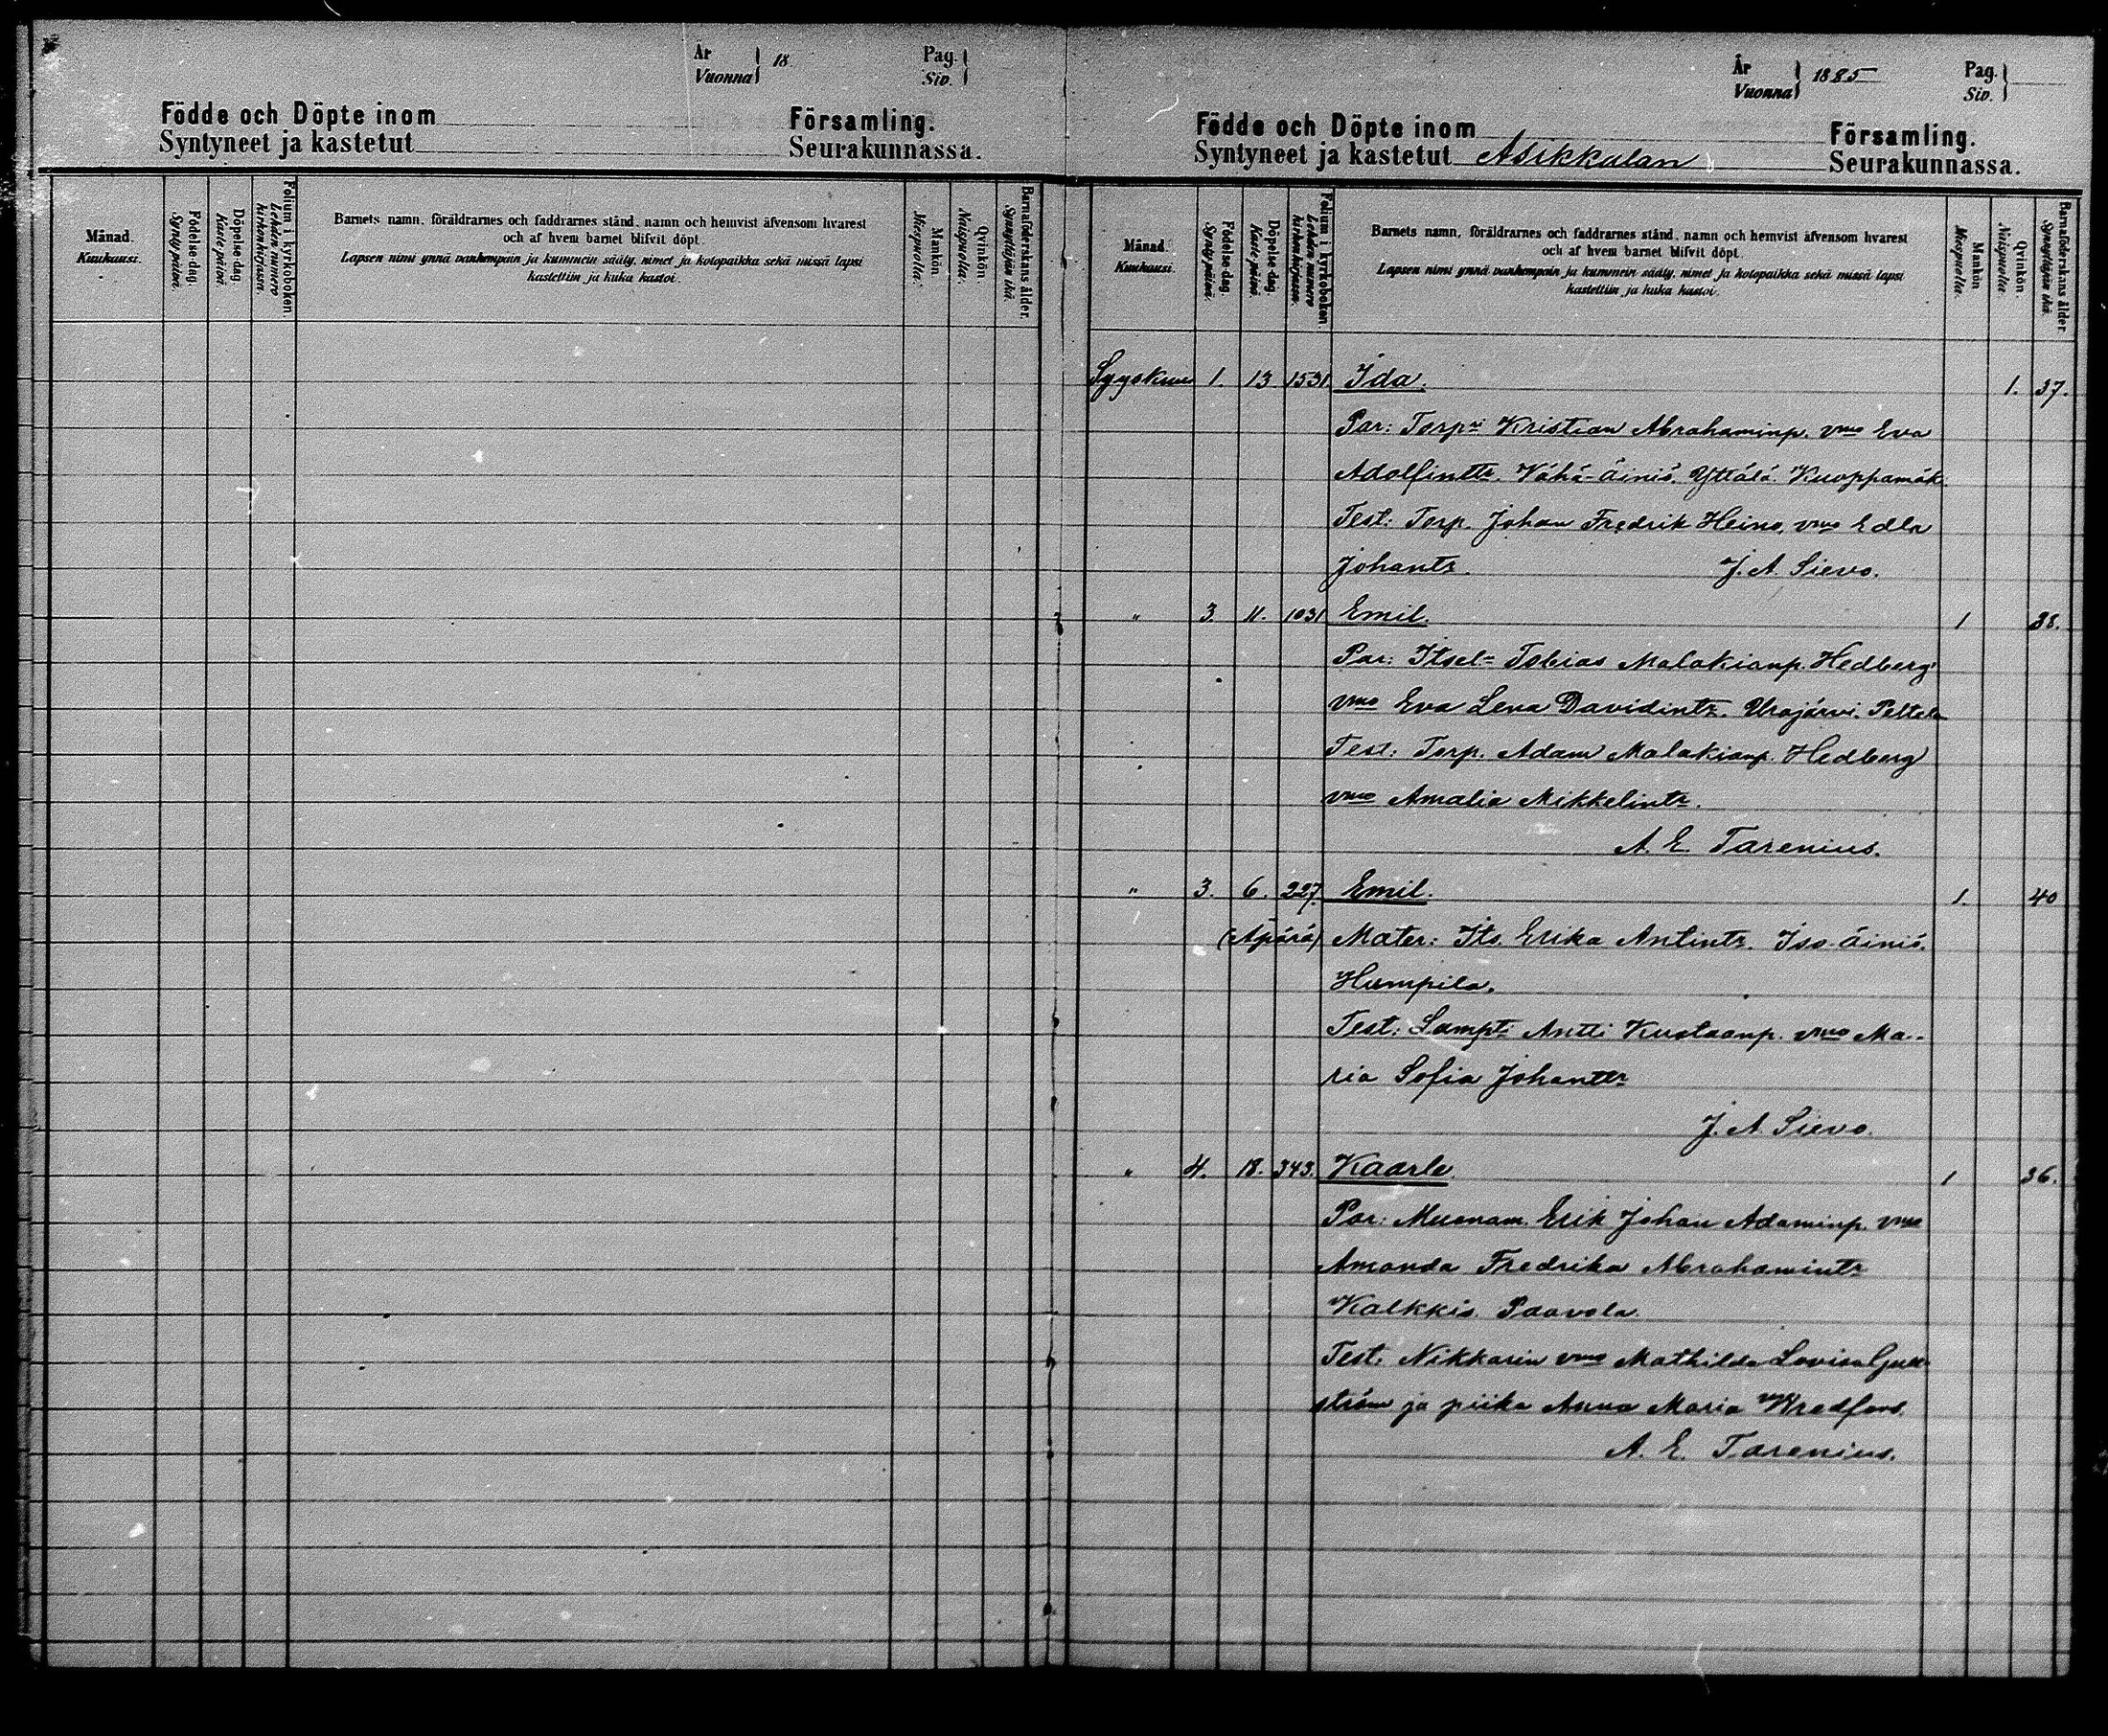 År
Vuonna } 18
Pag.
Siv. }
Födde och Döpte inom Församling.
Syntyneet ja kastetut Seurakunnassa.
Månad.
Kuukausi.
Födelse-dag.
Synty päivä.
Döpelse-dag.
Kaste päivä.
Folium i kyrkoboken.
Lehden numero kirkonkirjassa.
Barnets namn, föräldrarnes och faddrarnes stånd, namn och hemvist äfvensom hvarest
och af hvem barnet blifvit döpt.
Lapsen nimi ynnä vanhempain ja kummein sääty, nimet ja kotopaikka sekä missä lapsi
kastettiin ja kuka kastoi.
Mankön.
Miespuolta.
Qvinkön.
Naispuolta.
Barnaföderskans ålder.
Synnyttäjän ikä.
År
Vuonna } 1885
Pag.
Siv. }
Födde och Döpte inom Församling.
Syntyneet ja kastetut Asikkalan Seurakunnassa.
Månad.
Kuukausi.
Födelse-dag.
Synty päivä.
Döpelse-dag.
Kaste päivä.
Folium i kyrkoboken.
Lehden numero kirkonkirjassa.
Barnets namn, föräldrarnes och faddrarnes stånd, namn och hemvist äfvensom hvarest
och af hvem barnet blifvit döpt.
Lapsen nimi ynnä vanhempain ja kummein sääty, nimet ja kotopaikka sekä missä lapsi
kastettiin ja kuka kastoi.
Mankön
Miespuolta.
Qvinkön.
Naispuolta
Barnaföderskans ålder
Synnyttäjän ikä.
Syyskuu 1. 13 1531 Ida. 1. 37.
Par: Torpri Kristian Abrahaminp. vmo Eva
Adolfinttr. Vähä-äiniö. Yttälä. Kuoppamäk.
Test: Torp. Johan Fredrik Heino, vmo Edla
Johantr. J. A. Sievo.
" 3. 11. 1031 Emil. 1 38.
Par: Itsel- Tobias Malakianp. Hedberg
vmo Eva Lena Davidintr. Urajärvi. Peltola
Test: Torp. Adam Malakianp. Hedberg
vmo Amalia Mikkelintr.
A. E. Tarenius.
" 3. 6. 227. Emil. 1. 40
(Äpärä) Mater: Its. Erika Antintr. Iso-äiniö.
Humpila.
Test: Lampti Antti Kustaanp. vmo Ma-
ria Sofia Johanttr
J. A. Sievo.
" 4. 18. 343. Kaarle. 1 36.
Par: Muonam. Erik Johan Adaminp. vmo
Amanda Fredrika Abrahamintr
Kalkkis. Paavola.
Test. Nikkarin vmo Mathilda Lovisa Gull-
ström ja piika Anna Maria Wredfors.
A. E. Tarenius.